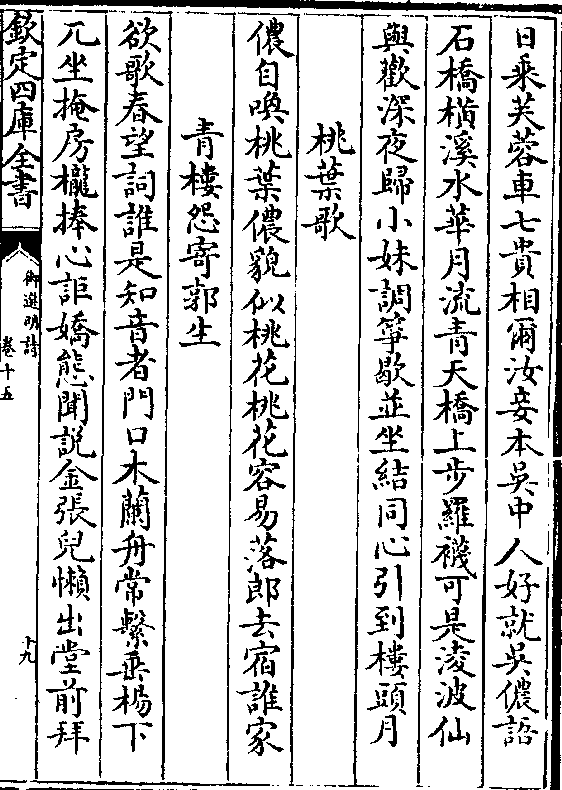 日乘芙蓉車七貴相爾汝妾本吳中人好就吳儂語
石橋橫溪水華月流青天橋上步羅襪可是淩波仙
與歡深夜歸小妹調箏歇並坐結同心引到樓頭月
桃葉歌
儂自喚桃葉儂貌似桃花桃花容易落郎去宿誰家
青樓怨寄郭生
欲歌春望詞誰是知音者門口木蘭舟常繫垂楊下
兀坐掩房櫳捧心詎嬌態聞説金張兒懶出堂前拜
欽定四庫全書
御選明詩
卷十五
十九